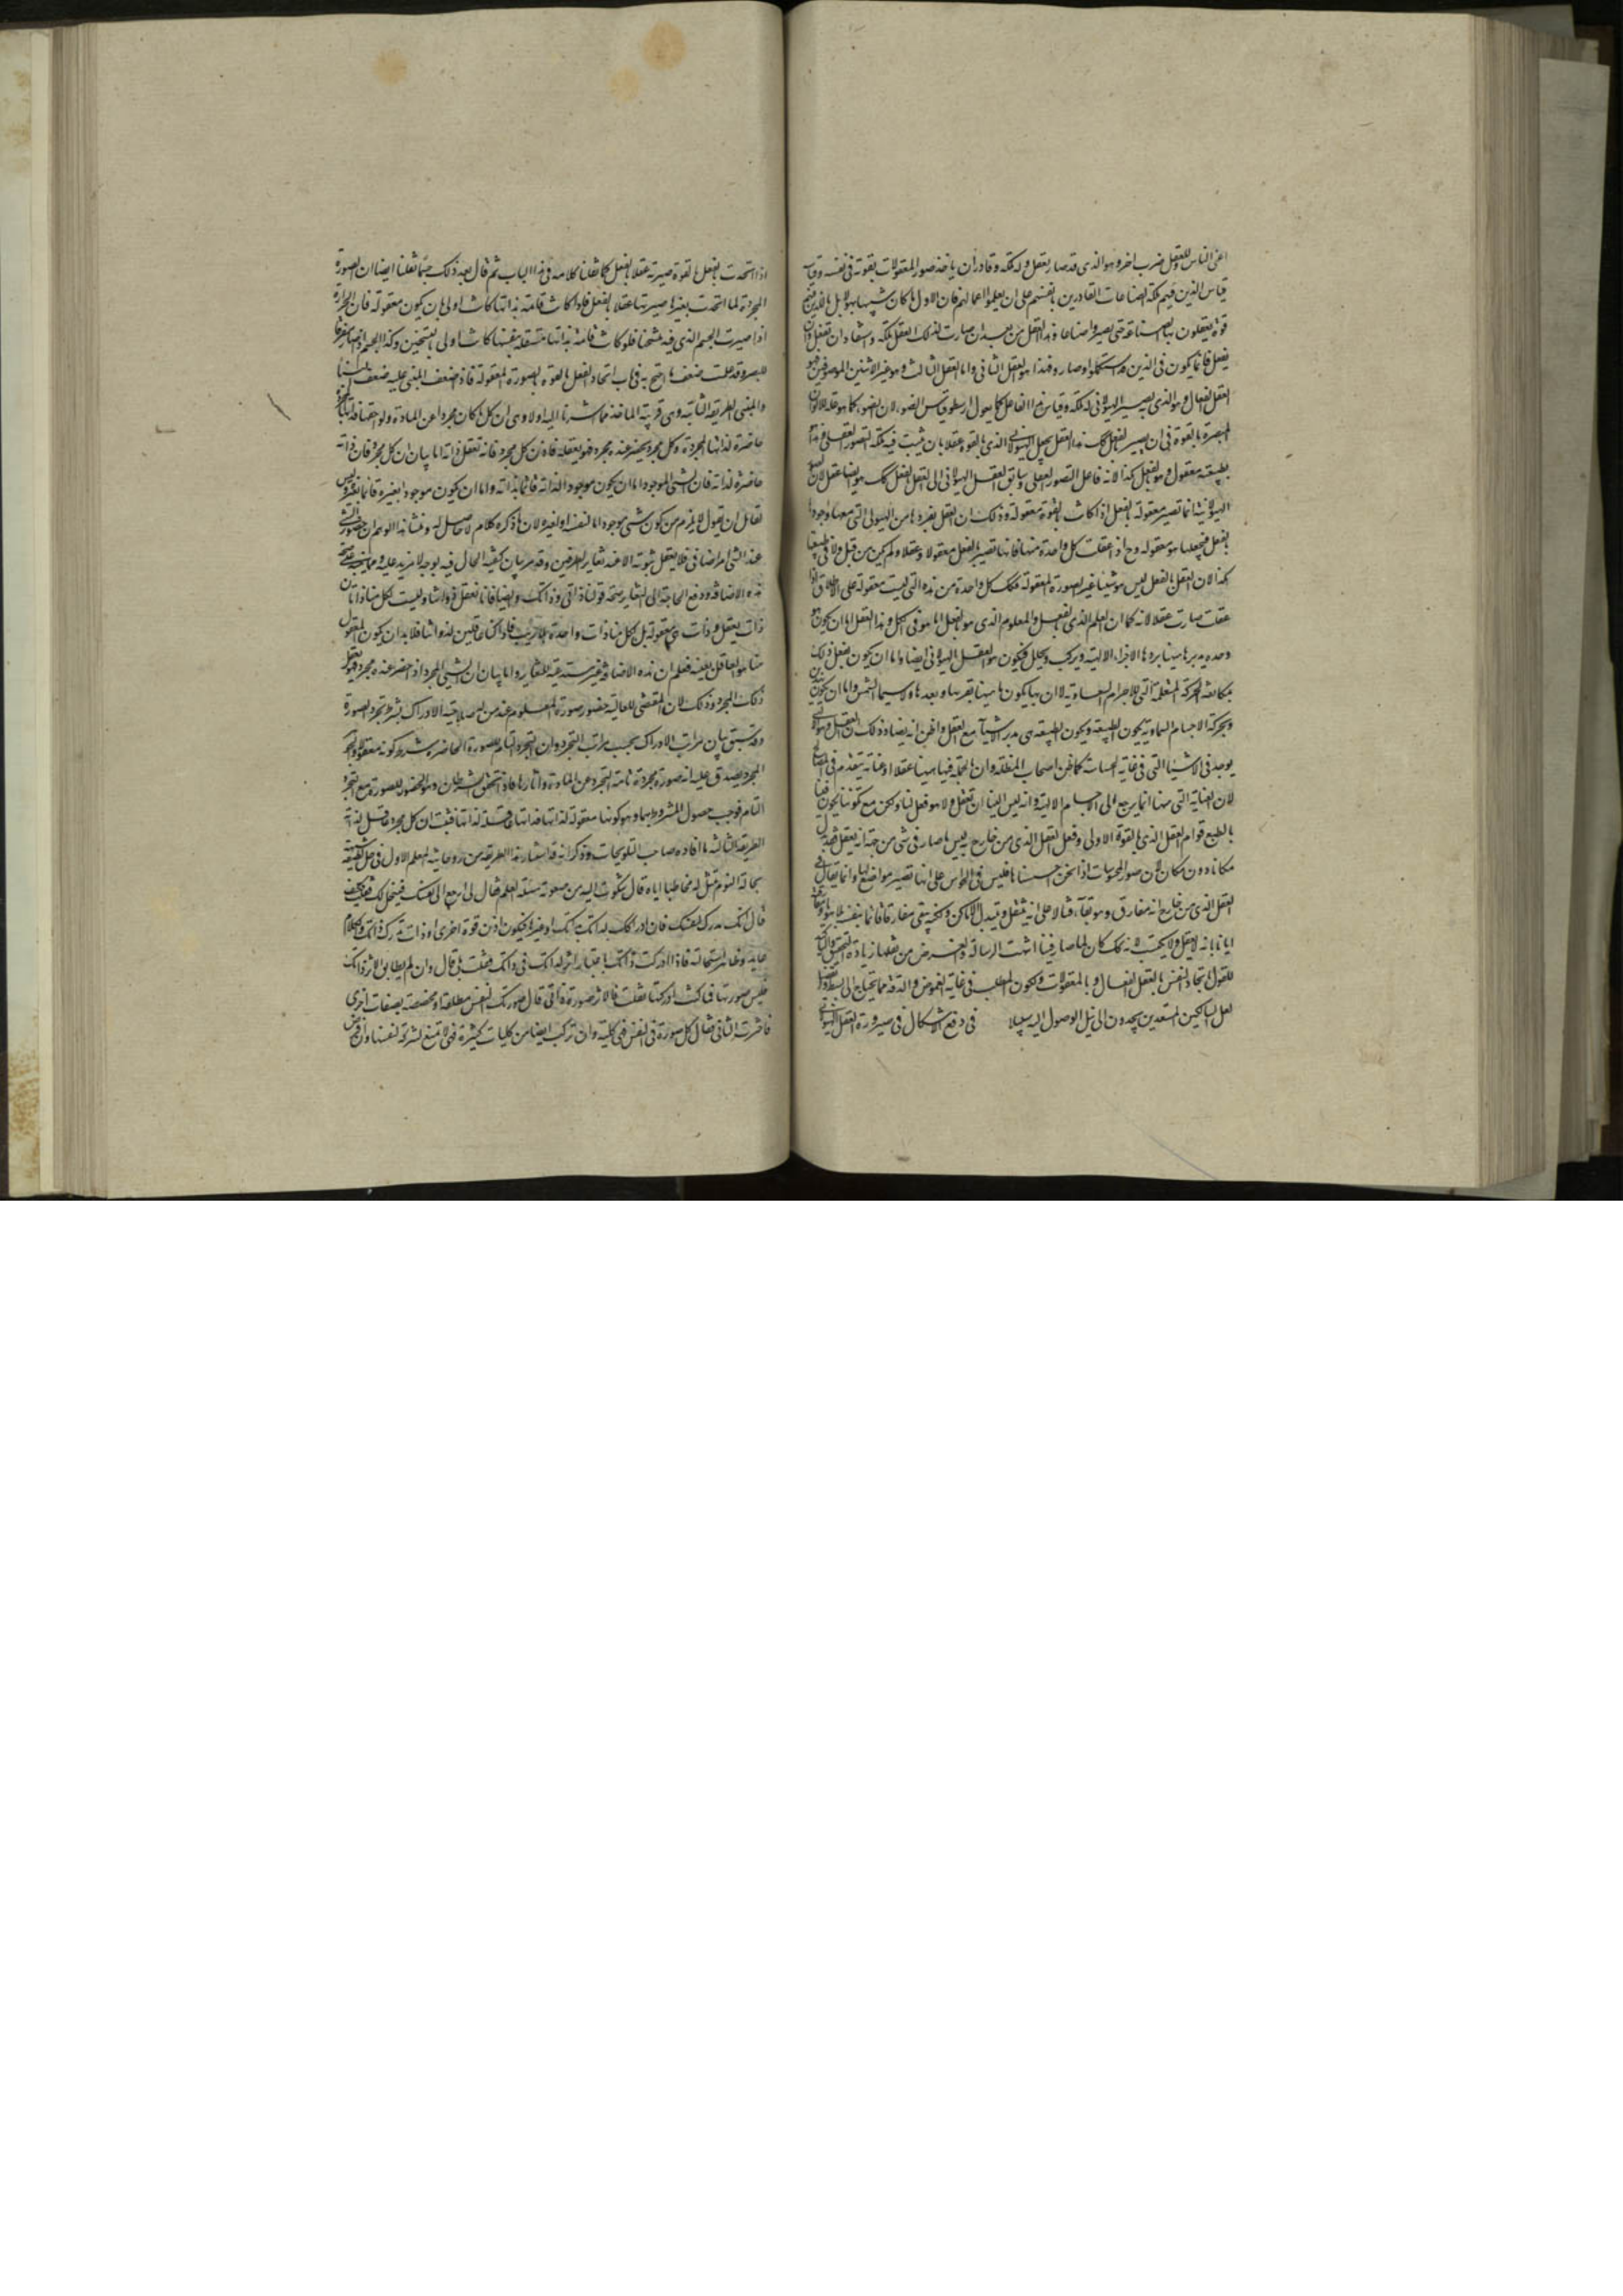 اعنى الناس وللعقل ضرب اخر وهو الذى قد صار يعقل وله ملكة وقادر ان ياخذ صور المعقولات بقوته فى نفسه
قياس الذين فيهم ملكة الصناعات القادرين بانفسهم على ان يعلموا اعمالهم فان الاول ما كان شبيها بهؤلاء بل بالذين فيهم
قوة يقبلون بها الصناعة حتى يصيروا صناعا وهذا العقل من بعد ان صارت لذلك العقل ملكة واستفاد ان يعقل وان
يفعل فانما يكون فى الذين قد استكملوا وصاروا فهذا هو العقل الثانى واما العقل الثالث وهو غير الاثنين الموصوفين فهو
العقل الفعال وهو الذى به يصير الهيولانى له ملكة وقياس هذا الفاعل كما يقول ارسطو قياس الضوء لان الضوء كما هو علة للالوان
المبصرة بالقوة فى ان يصير بالفعل كك هذا العقل يجعل العقل الهيولانى الذى بالقوة عقلا بان يثبت فيه ملكة التصور العقلى وهذا
بطبيعته معقول وهو بالفعل هكذا لانه فاعل التصور العقلى وسائق العقل الهيولانى الى العقل بالفعل كك هو ايضا عقل لان
الهيولانية انما تصير معقولة بالفعل اذا كانت بالقوة معقولة وذلك ان العقل يفردها من الهيولى التى معها وجودها
بالفعل فيجعلها هو معقولة وح اذا عقلت كل واحدة منها فانها تصير بالفعل معقولا وعقلا ولم يكن من قبل ولا فى طبيعتها
هكذا لان العقل بالفعل ليس هو شيئا غير الصورة المعقولة فكك كل واحدة من هذه التى ليست معقولة على الاطلاق اذا
عقلت صارت عقلا لانه كما ان العلم الذى بالفعل والمعلوم الذى هو بالفعل
وحده يدبر ما هيهنا بردها الى الاجرام الالهية ويركب ويحلل فيكون هو العقل الهيولانى ايضا واما ان يكون يفعل ذلك
بمكانفة الحركة المنتظمة التى للاجرام السماوية لان بها يكون ما هيهنا بقربها وبعدها ولا سيما الشمس واما ان يكون
وبحركة الاجسام السماوية يكون الطبيعة ويكون الطبيعة هى مدبر الاشياء مع العقل واظن انه يضاد ذلك ان العقل وهو الهى
يوجد فى الاشياء التى فى غاية الخساسة كما ظن اصحاب المظلة وان بالجملة فيما هيهنا عقلا او عناية يتقدم فى
لان العناية التى هيهنا انما يرجع الى الاجسام الالهية وانه ليس الينا ان نعقل ولا هو فعل لنا ولكن مع تكوننا يكون فينا
بالطبع قوام العقل الذى بالقوة الاولى وفعل العقل الذى من خارج وليس ما صار فى شىء من جهة انه يعقل
مكانا دون مكان لان صور المحسوسات اذا نحن احسسناها فليس هى فى الحواس على انها تصير مواضع لها وانما يقال فى
العقل الذى من خارج انه مفارق وهو يفارقنا لا على انه ينتقل ويتبدل الاماكن ولكنه يبقى مفارقا قائما بنفسه بلا هيولى
ايانا بانه لا يعقل ولا يكتسب لانه كك كان لما صار فينا انتهت الرسالة والغرض من نقلها زيادة التحقيق
للقول باتحاد النفس بالعقل الفعال وبالمعقولات ولكون المطلب فى غاية الغموض والدقة مما يحتاج الى بسط
لعل السالكين المستعدين يجدون الى نيل الوصول اليه سبيلا فى دفع الاشكال فى صيرورة العقل الهيولانى
اذا اتحدت بالعقل بالقوة صيرته عقلا بالفعل كما نقلنا كلامه فى هذا الباب ثم قال بعد ذلك ايضا ان الصورة
المجردة لما اتحدت بغيرها صيرتها عقلا بالفعل فاذا كانت قائمة بذاتها كانت اولى بان يكون معقولة فان الحرارة
اذا صيرت الجسم الذى فيه متسخنا فلو كانت قائمة بذاتها مستقلة بنفسها كانت اولى بالتسخين وكذا الجسم
للبصر وقد علمت ضعف ما احتج به فى باب اتحاد العقل بالقوة بالصورة المعقولة فاذا ضعف المبنى عليه ضعف البناء
والمبنى الطريقة الثانية وهى قريبة الماخذ مما اشرنا اليه اولا وهى ان كل ما كان مجردا عن المادة ولواحقها فذاته المجردة
حاضرة لذاتها المجردة وكل مجرد يحضر عنده مجرد فهو يعقله فاذن كل مجرد فانه يعقل ذاته اما بيان ان كل مجرد فان ذاته
حاضرة لذاته فلان الشئ الموجود اما ان يكون موجودا لذاته قائما بذاته واما ان يكون موجودا بغيره قائما بغيره وليس
لقائل ان يقول لا يلزم من كون شئ موجودا اما لنفسه او لغيره لان ما ذكره كلام لا حاصل له ومنشأ هذا الوهم ان حضور الشئ
عند الشئ امر اضافى فلا يعقل ثبوته الا عند تغاير الطرفين وقد مر بيان كيفية الحال فيه بوجه لا مزيد عليه ومما
هذه الاضافة ودفع الحاجة الى التغاير صحة قولنا ذاتى وذاتك وايضا فانا نعقل ذواتنا وليست لكل منا ذاتان
ذات يعقل وذات هى معقولة بل لكل منا ذات واحدة بلا ريب فاذا كنا عاقلين لذواتنا فلا بد ان يكون المعقول
منا هو العاقل بعينه فعلم ان هذه الاضافة غير مستدعية للتغاير واما بيان ان الشئ المجرد اذا حضر عنده مجرد فهو يعقل
ذلك المجرد وذلك لان المقتضى للعالمية حضور صورة المعلوم عند من له صلاحية الادراك بشرط تجرد الصورة
وقد سبق بيان مراتب الادراك بحسب مراتب التجرد وان التجرد التام للصورة الحاضرة شرط كونه معقولا
المجرد يصدق عليه انه صورة مجردة تامة التجرد عن المادة واثارها فاذا تحقق الشرطان وهو الحضور للصورة مع التجرد
التام فوجب حصول المشروط بهما وهو كونها معقولة لذاتها فذاتها عاقلة لذاتها فثبت ان كل مجرد عاقل لذاته
الطريقة الثالثة ما افاده صاحب التلويحات وذكر انه قد استفاد هذا الطريقة من روحانية المعلم الاول فى
بحالة النوم مثل له مخاطبا اياه قال شكوت اليه من صعوبة مسئلة العلم فقال لى ارجع الى نفسك فينحل لك فقلت وكيف
قال انك مدرك لنفسك فان ادراكك لذاتك بذاتك او غيرها فيكون اذن قوة اخرى او ذات تدرك ذاتك والكلام
عايد وظاهر استحالته فاذا ادركت ذاتك باعتبار اثر لذاتك فى ذاتك فقلت بلى قال وان لم يطابق الاثر ذاتك
فليس صورتها فما كنت ادركتها فقلت فالاثر صورة ذاتى قال صورتك لنفس مطلقة او مخصصة بصفات اخرى
فاخترت الثانى فقال كل صورة فى النفس فهى كلية وان تركبت ايضا من كليات كثيرة فهى لا تمنع الشركة لنفسها وان فرض